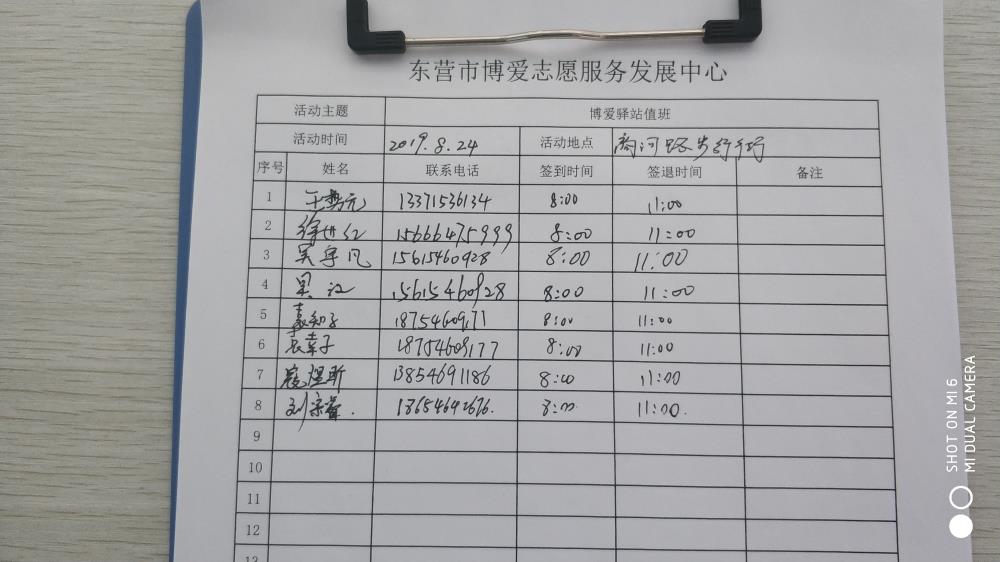 东营市博爱志愿服务发展中心
活动主题 博爱驿站值班
活动时间 2019.8.24 活动地点 商河路步行街
序号 姓名 联系电话 签到时间 签退时间 备注
1 13371536134 8:00 11:00
2 15666475999 8:00 11:00
3 吴宇凡 15615460928 8:00 11:00
4 15615460928 8:00 11:00
5 8:00 11:00
6 18754609177 8:00 11:00
7 13854691186 8:00 11:00
8 刘宗睿. 8:00 11:00.
9
10
11
12
13
SHOT ON MI 6
MI DUAL CAMERA